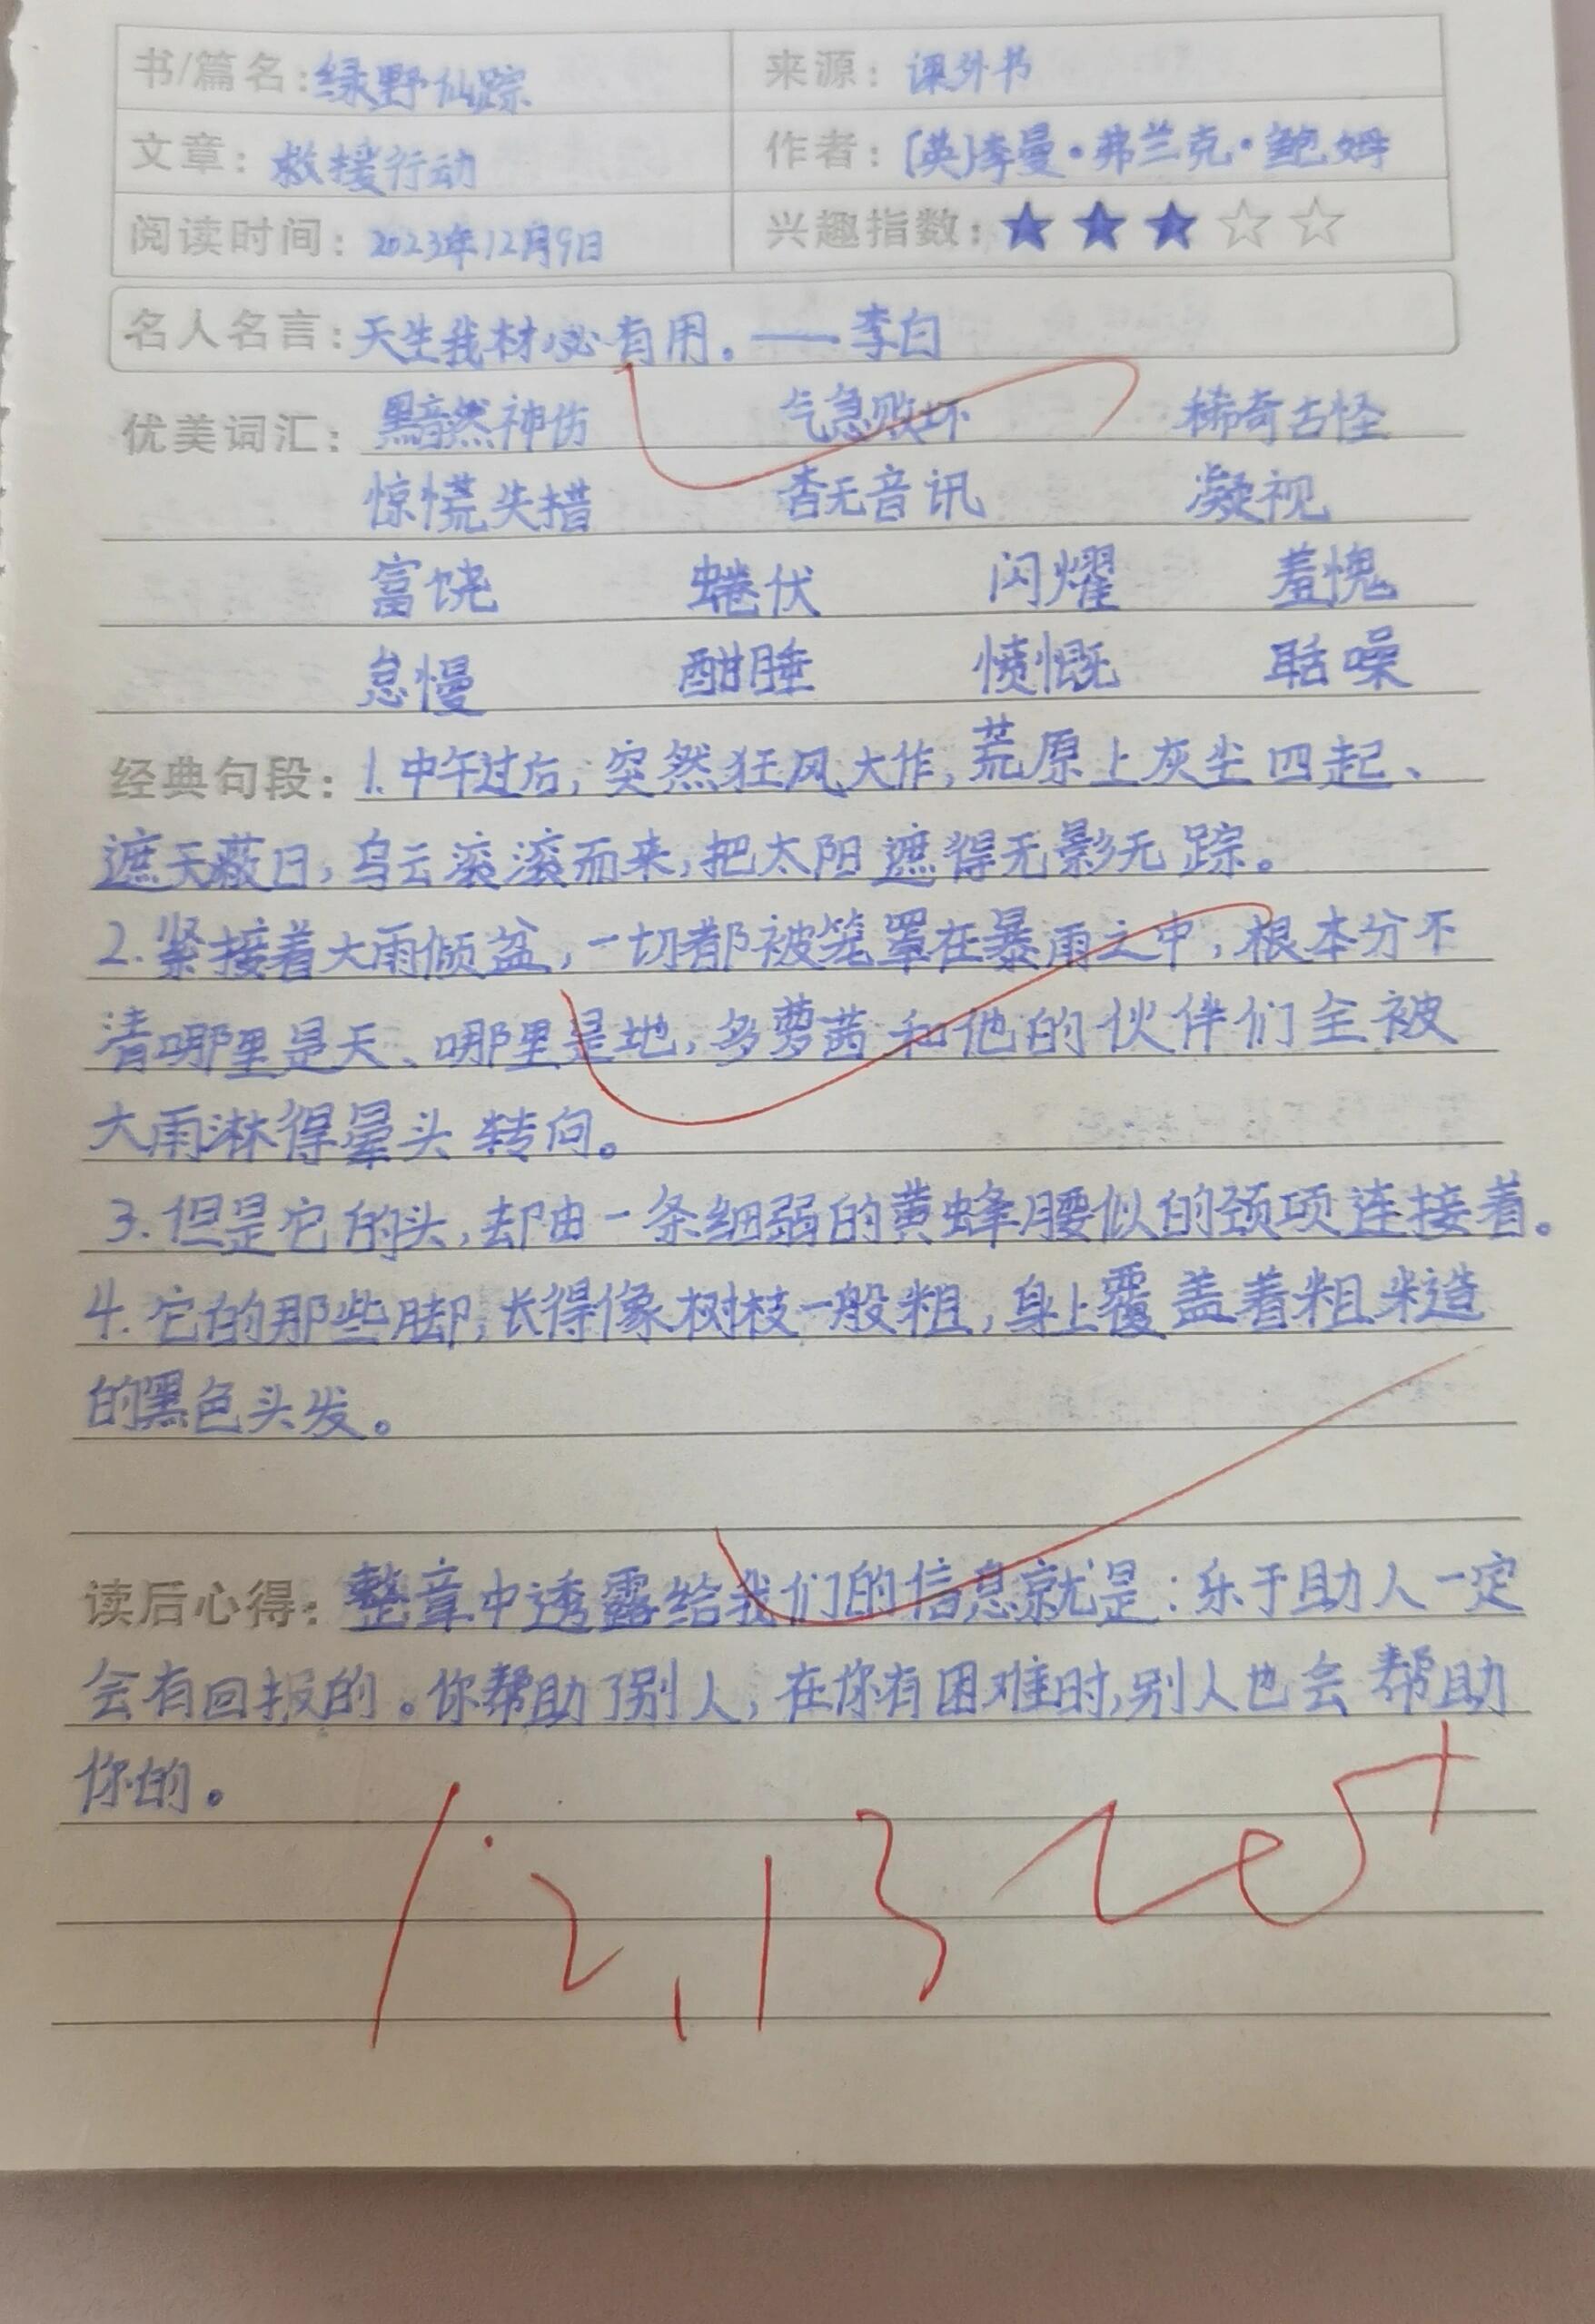 书/篇名:绿野仙踪 来源:课外书
文章:救援行动 作者:[英]李曼·弗兰克·鲍姆
阅读时间:2023年12月9日 兴趣指数:★★★☆☆
名人名言:天生我材必有用。——李白
优美词汇: 黯然神伤 气急败坏 稀奇古怪
惊慌失措 杳无音讯 凝视
富饶 蜷伏 闪耀 羞愧
怠慢 酣睡 愤慨 聒噪
经典句段:1.中午过后,突然狂风大作,荒原上灰尘四起、
遮天蔽日,乌云滚滚而来,把太阳遮得无影无踪。
2.紧接着大雨倾盆,一切都被笼罩在暴雨之中,根本分不
清哪里是天、哪里是地,多萝茜和他的伙伴们全被
大雨淋得晕头转向。
3.但是它的头,却由一条细弱的黄蜂腰似的颈项连接着。
4.它的那些脚,长得像树枝一般粗,身上覆盖着粗糙
的黑色头发。
读后心得:整章中透露给我们的信息就是:乐于助人一定
会有回报的。你帮助了别人,在你有困难时,别人也会帮助
你的。
12,13